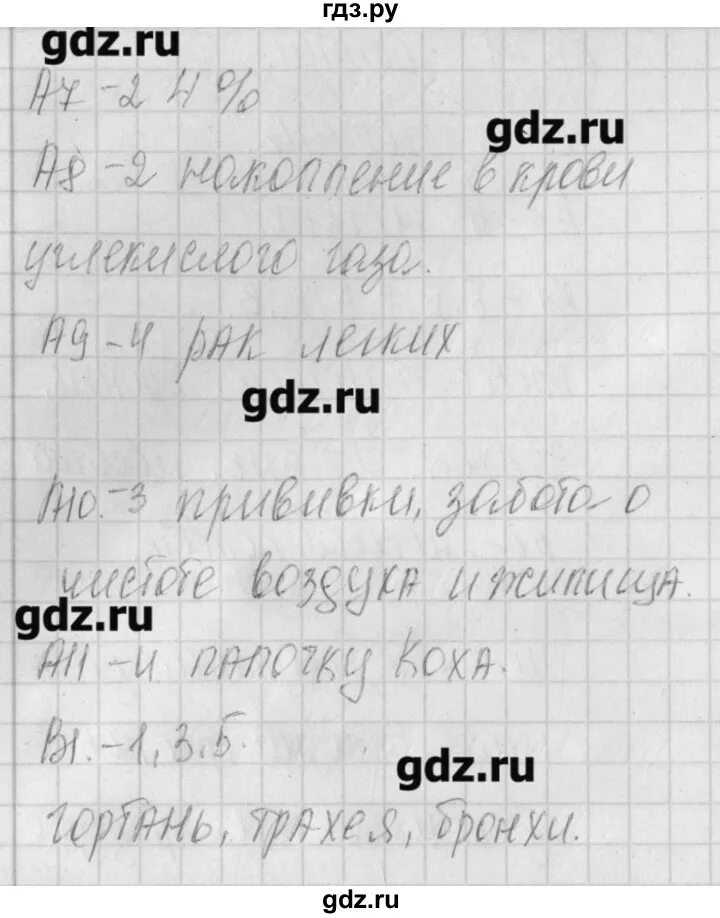 гдз.ру
gdz.ru
А7 -2 4 %
gdz.ru
А8 -2 накопление в крови
углекислого газа.
А9 -4 рак легких
gdz.ru
А10.-3 прививки, забота о
чистоте воздуха и жилища.
gdz.ru
А11 -4 палочку Коха.
В1. -1, 3. 5.
gdz.ru
гортань, трахея, бронхи.
gdz.ru